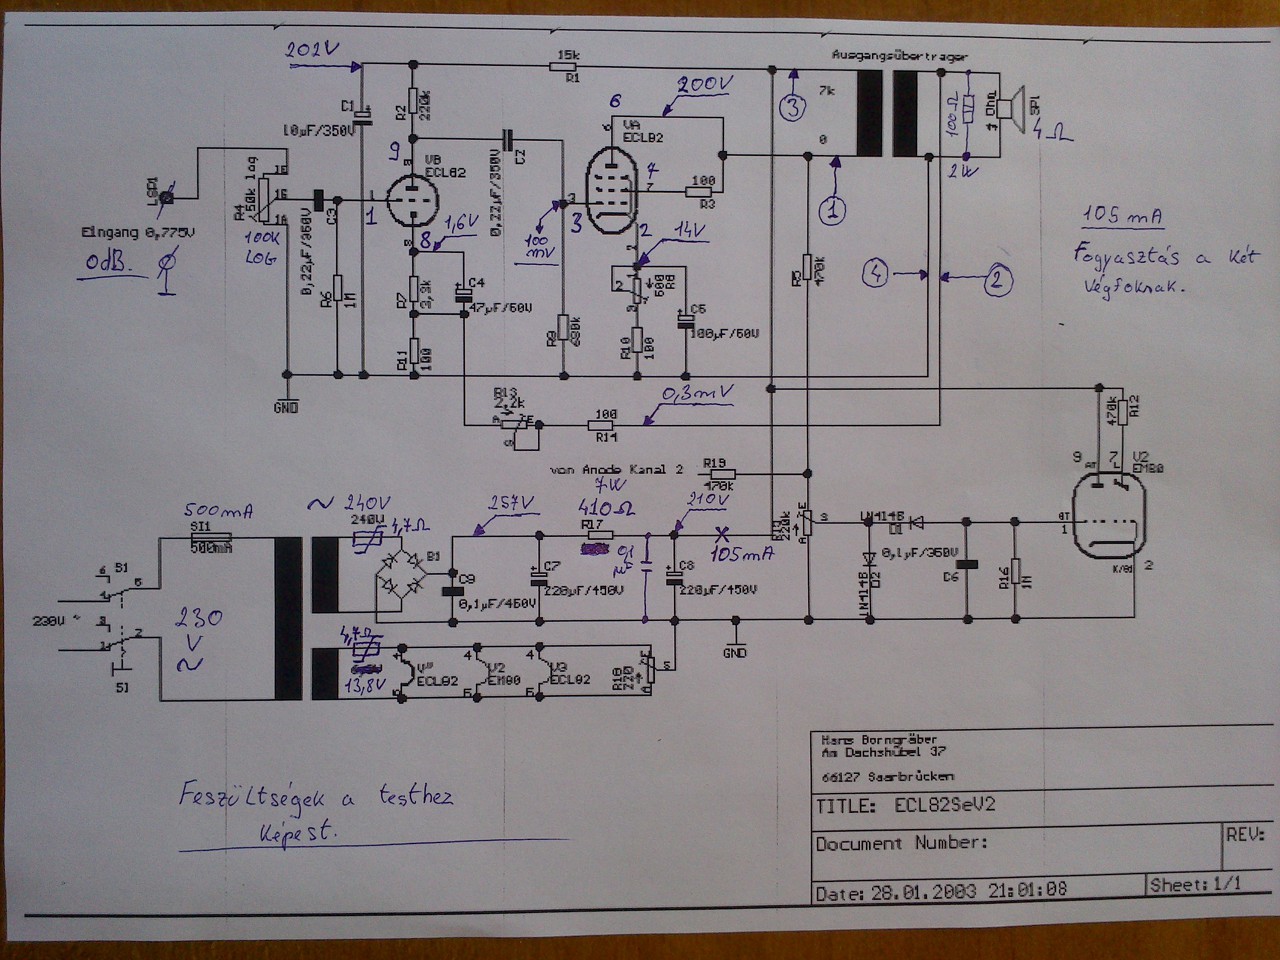 202V
15k
R1
Ausgangsübertrager
C1
10µF/350V
R2
220k
9
VB
ECL82
1
8
1,6V
C2
0,22µF/350V
6
200V
VA
ECL82
7
100
R3
3
3
100
mV
2
14V
7k
0
3
1
100Ω
2W
SP1
4Ω
LSP1
Eingang 0,775V
0dB.
R4
50k log
100K
LOG
C3
0,22µF/350V
R6
1M
R7
3,3k
C4
47µF/50V
R11
100
R9
680k
500
R8
R10
100
C5
100µF/60V
R5
470k
4
2
105 mA
Fogyasztás a két
végfoknak.
GND
R13
2,2k
100
R14
0,3mV
von Anode Kanal 2
R19
470k
R12
470k
9
7
V2
EM80
1
K/G3
2
500mA
SI1
500mA
~ 240V
240V
4,7Ω
B1
257V
7W
410Ω
R17
210V
105mA
C9
0,1µF/450V
C7
220µF/450V
0,1
µF
C8
220µF/450V
220k
LN4148
D1
LN4148
D2
0,1µF/350V
C6
R16
1M
S1
230V ~
S1
230
V
~
4,7Ω
13,8V
ECL82
V2
EM80
V3
ECL82
R18
220
GND
Feszültségek a testhez
képest.
Hans Borngräber
Am Dachshübel 37
66127 Saarbrücken
TITLE: ECL82SeV2
Document Number:
REV:
Date: 28.01.2003 21:01:08
Sheet: 1/1